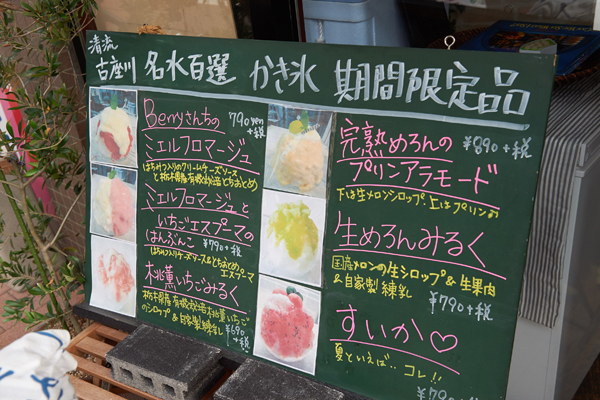 清流
古座川 名水百選 かき氷 期間限定品
Berryさんちの
ミエルフロマージュ
790yen
+税
はちみつ入りのクリームチーズソース
と栃木県産有機栽培とちおとめ
ミエルフロマージュと
いちごエスプーマの
はんぶんこ ¥790+税
はちみつ入りチーズソース&とちおとめエスプーマ
桃薫いちごみるく
栃木県産有機栽培桃薫いちご
のシロップ&自家製練乳 ¥690
+税
完熟めろんの ¥890+税
プリンアラモード
下は生メロンシロップ、上はプリン
生めろんみるく
国産メロンの生シロップ&生果肉
&自家製練乳 ¥790+税
すいか♡
夏といえば‥コレ!!
¥790+税